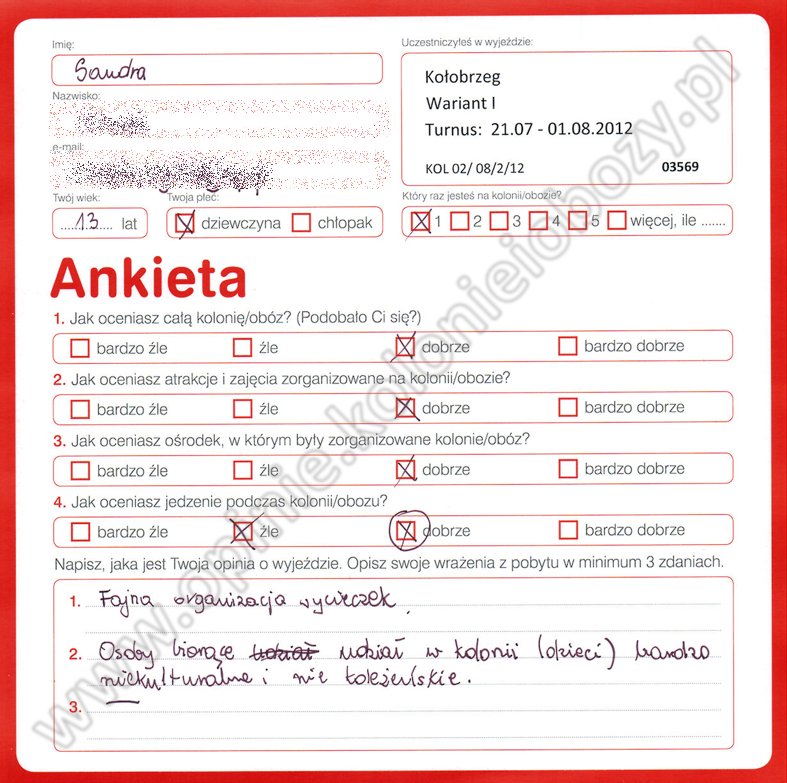 Imię:
Sandra
Nazwisko:
e-mail:
Twój wiek:
13 lat
Twoja płeć:
dziewczyna chłopak
Uczestniczyłeś w wyjeździe:
Kołobrzeg
Wariant I
Turnus: 21.07 - 01.08.2012
KOL 02/ 08/2/12 03569
Który raz jesteś na kolonii/obozie?
1 2 3 4 5 więcej, ile .......
Ankieta
1. Jak oceniasz całą kolonię/obóz? (Podobało Ci się?)
bardzo źle źle dobrze bardzo dobrze
2. Jak oceniasz atrakcje i zajęcia zorganizowane na kolonii/obozie?
bardzo źle źle dobrze bardzo dobrze
3. Jak oceniasz ośrodek, w którym były zorganizowane kolonie/obóz?
bardzo źle źle dobrze bardzo dobrze
4. Jak oceniasz jedzenie podczas kolonii/obozu?
bardzo źle źle dobrze bardzo dobrze
Napisz, jaka jest Twoja opinia o wyjeździe. Opisz swoje wrażenia z pobytu w minimum 3 zdaniach.
1. Fajna organizacja wycieczek.
2. Osoby biorące udział udział w kolonii (dzieci) bardzo
niekulturalne i nie koleżeńskie.
3.
www.opinie.kolonieiobozy.pl